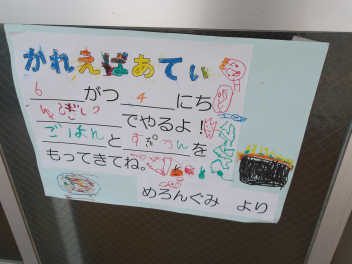 かれえぱあてぃ
6 がつ 4 にち
でやるよ!
ごはんとすぷうんを
もってきてね。
めろんぐみ より